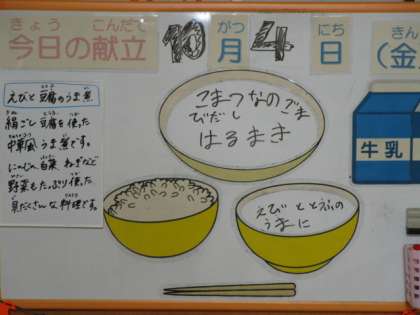 きょう こんだて がつ にち きん
今日の献立 10月4日(金)
えびと豆腐のうま煮
絹ごし豆腐を使った
中華風うま煮です。
にんじん、白菜、ねぎなど
野菜もたっぷり使った
具だくさんな料理です。
こまつなのごま
びだし
はるまき
えびととうふの
うまに
牛乳